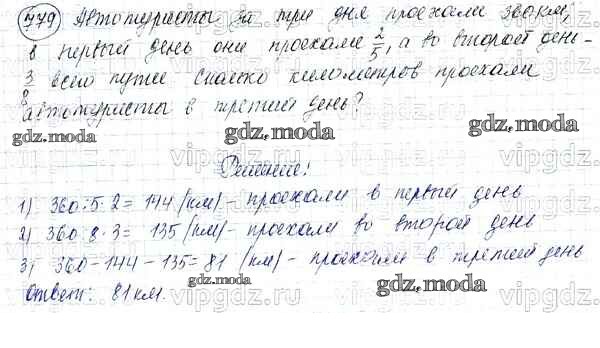 779 Автотуристы за три дня проехали 360км,
в первый день они проехали 2/5, а во второй день -
3/8 всего пути Сколько километров проехали
автотуристы в третий день?
gdz.moda gdz.moda gdz.moda
Решение!
1) 360:5·2= 144 (км) - проехали в первый день
2) 360 8·3= 135 (км) - проехали во второй день
3) 360-144-135=81 (км) - проехали в третий день
Ответ: 81 км.
gdz.moda gdz.moda gdz.moda
vipgdz.ru